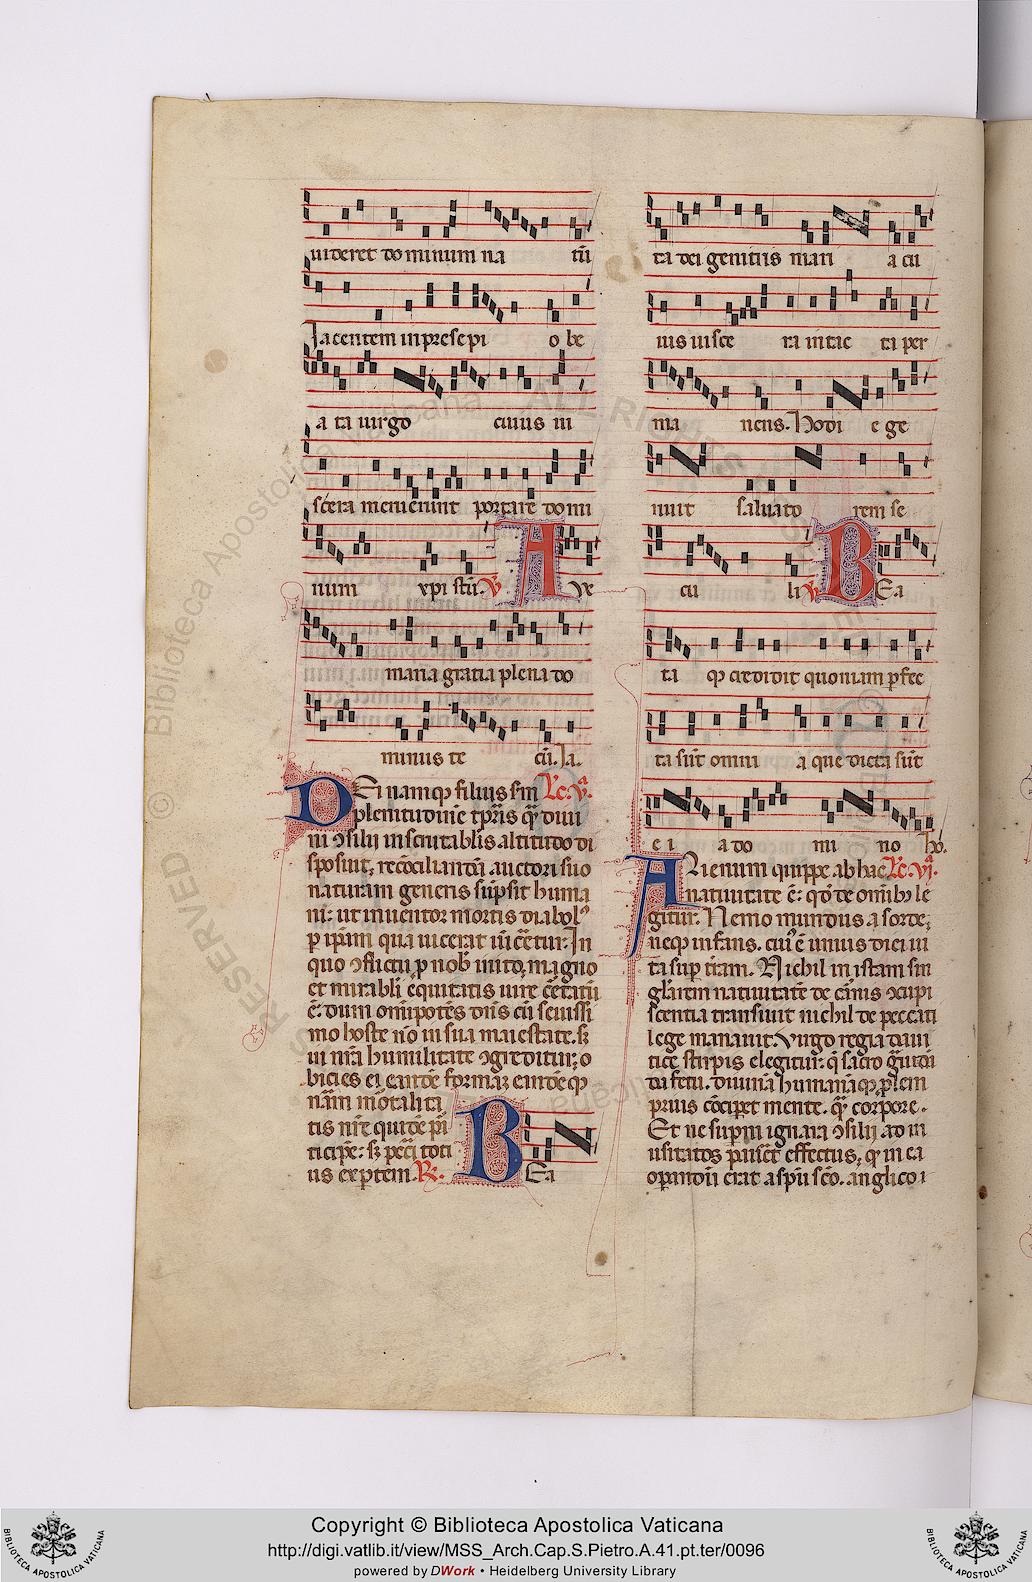 uideret dominum na tū
Jacentem in presepi o be
a ta uirgo cuius ui
scera meruerunt portare domi
num xpi stū. V. A ve
maria gratia plena do
minus te cū. Ja.
DEi namq filius sm Lc. v.
plenitudinē tp̄ris qͣ diui
ni ↄsilii inscrutabl̄is altitudo di
sposuit, recōciliandā auctori suo
naturam generis sūpsit huma
ni: ut inuentor mortis diabol⁹
p ip̄am qua uicerat uīcēt͛: In
quo ↄflictu p nob̄ inito, magno
et mirabl̄i eq̄uitatis iure
dum om̄ipotēs dn̄s cū seuissi
mo hoste nō in sua maiestate. sꝫ
in nr̄a humilitate ↄgreditur; o
biciēs ei eandē formaꝫ eandēqꝫ
nām mortalita
tis nr̄e quidē pti
ticipē: sꝫ pcc̄i toti
us expertem. R. BEa
ta dei genitrix mari a cu
ius uisce ra intac ta per
ma nens. Hodi e ge
nuit saluato rem se
cu li V. BEa
ta q credidit quoniam pfec
ta sūt omni a que dicta sūt
e i a do mi no ho.
ALienum quippe ab hac Lc. vi.
natiuitate ē: qd de omībꝫ le
gitur. Nemo mundus a sorde,
neqꝫ infans. cui⁹ ē unius diei ui
ta sup trām. Nichil in istam sin
gl̄arem natiuitatē de carnis ↄcupi
scentia transiuit nichil de peccati
lege manauit. Virgo regia daui
tice stirpis eligitur: q̄ sacro grauidā
da fetu. diuinā humanāqꝫ plem
prius cōcipet mente. qͣ corpore.
Et ne supni ignara ↄsilii ad in
usitatos pauēt effectus, qꝫ in ea
opandū erat a spū scō. anglico i
Copyright © Biblioteca Apostolica Vaticana
http://digi.vatlib.it/view/MSS_Arch.Cap.S.Pietro.A.41.pt.ter/0096
powered by DWork • Heidelberg University Library